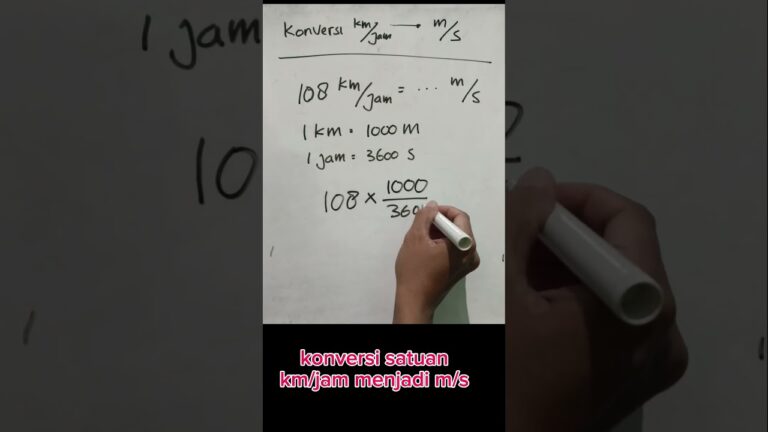 Konversi km/jam → m/s
108 km/jam = ... m/s
1 km = 1000 m
1 jam = 3600 s
108 × 1000/360
konversi satuan
km/jam menjadi m/s